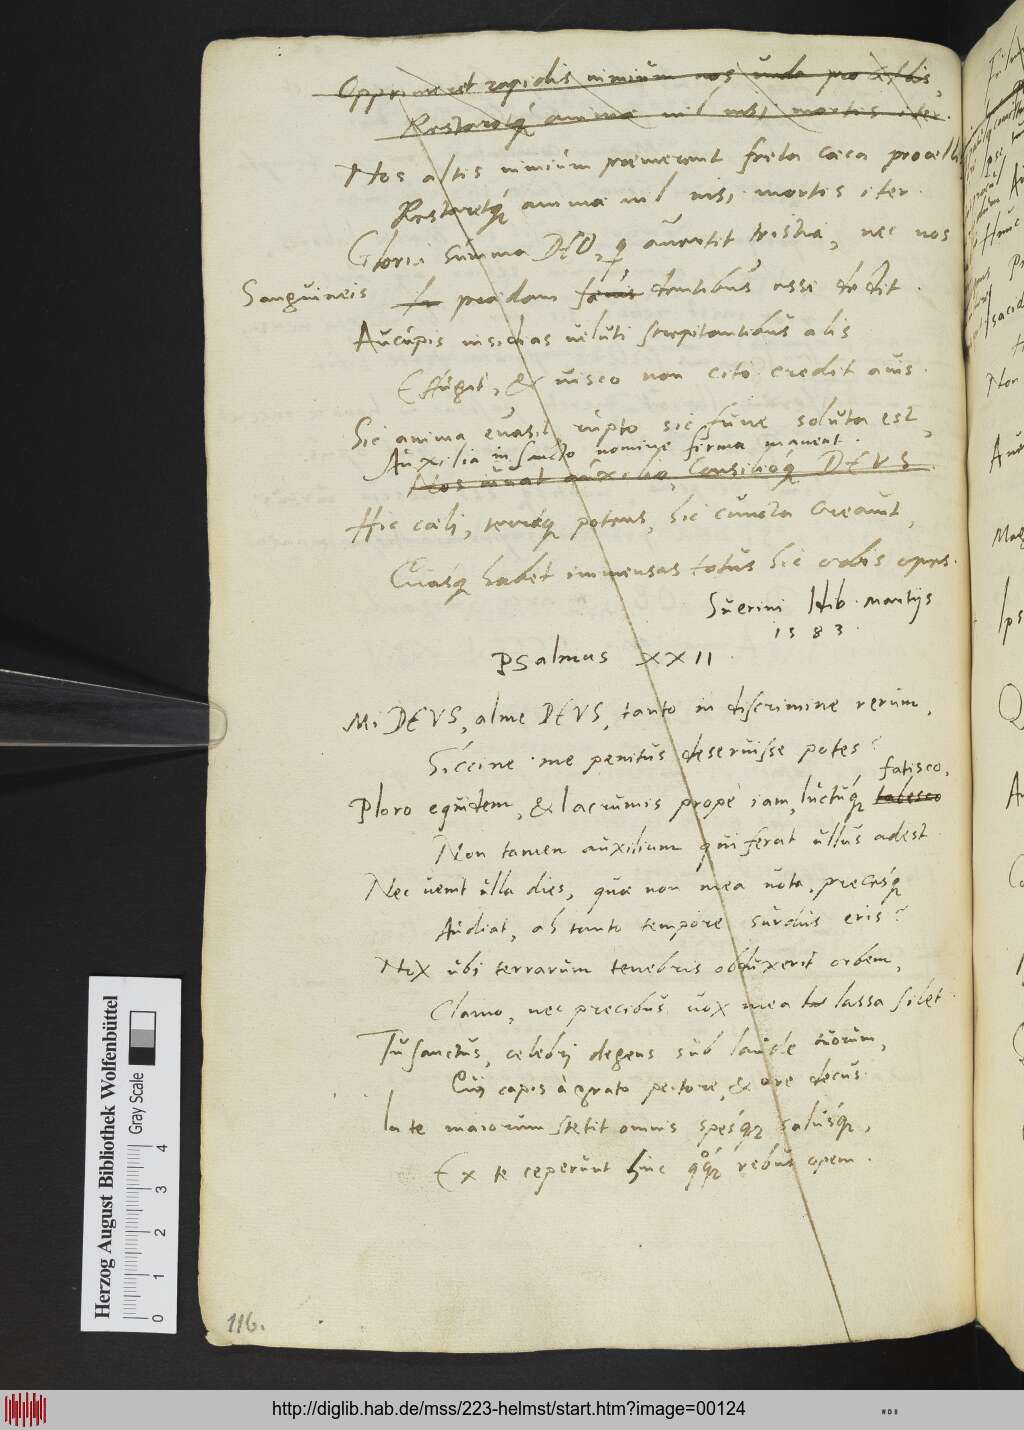 Opprimeret rapidis nimium nos unda procellis,
Restaretq́ animæ nil nisi mortis iter.
Nos altis nimium premerent freta cæca procellis
Restaretq́ animæ nil nisi mortis iter.
Gloria summa DEO, q avertit tristia, nec nos
Sanguineis In prædam fævis dentibus esse dedit.
Aucupis insidias veluti strepitantibus alis
Effugit, & visco non cito credit avis.
Sic anima evasit, rupto sic fune soluta est,
Auxilia in sancto nomine firma maneat.
Nos iuvat auxilio, Consilioq́ DEVS.
Hic cæli, terræq potens, hic cuncta creavit,
Cuiasq habet immensas totus hic orbis opes.
Suerini Hib. Martijs
1583.
Psalmus XXII.
Mi DEVS, alme DEVS, tanto in discrimine rerum,
Siccine me penitus deseruisse potes?
fatisco,
Ploro equidem, & lacrumis prope iam, luctuq́ tabesco
Non tamen auxilium qui ferat ullus adest
Nec venit ulla dies, quæ non mea vota, precesq
Audiat, ah tanto tempore surdus eris?
Nox ubi terrarum tenebris obduxerit orbem,
Clamo, nec precibus vox mea lassa silet.
Tu sanctus, celebrj degens sub laude tuorum,
Cuj capis à grato pectore, & ore decus.
In te maiorum stetit omnis spesq́, salusq́,
Ex te ceperunt hinc qoq́ rebus opem.
116.
Herzog August Bibliothek Wolfenbüttel
Gray Scale
0 1 2 3 4
http://diglib.hab.de/mss/223-helmst/start.htm?image=00124